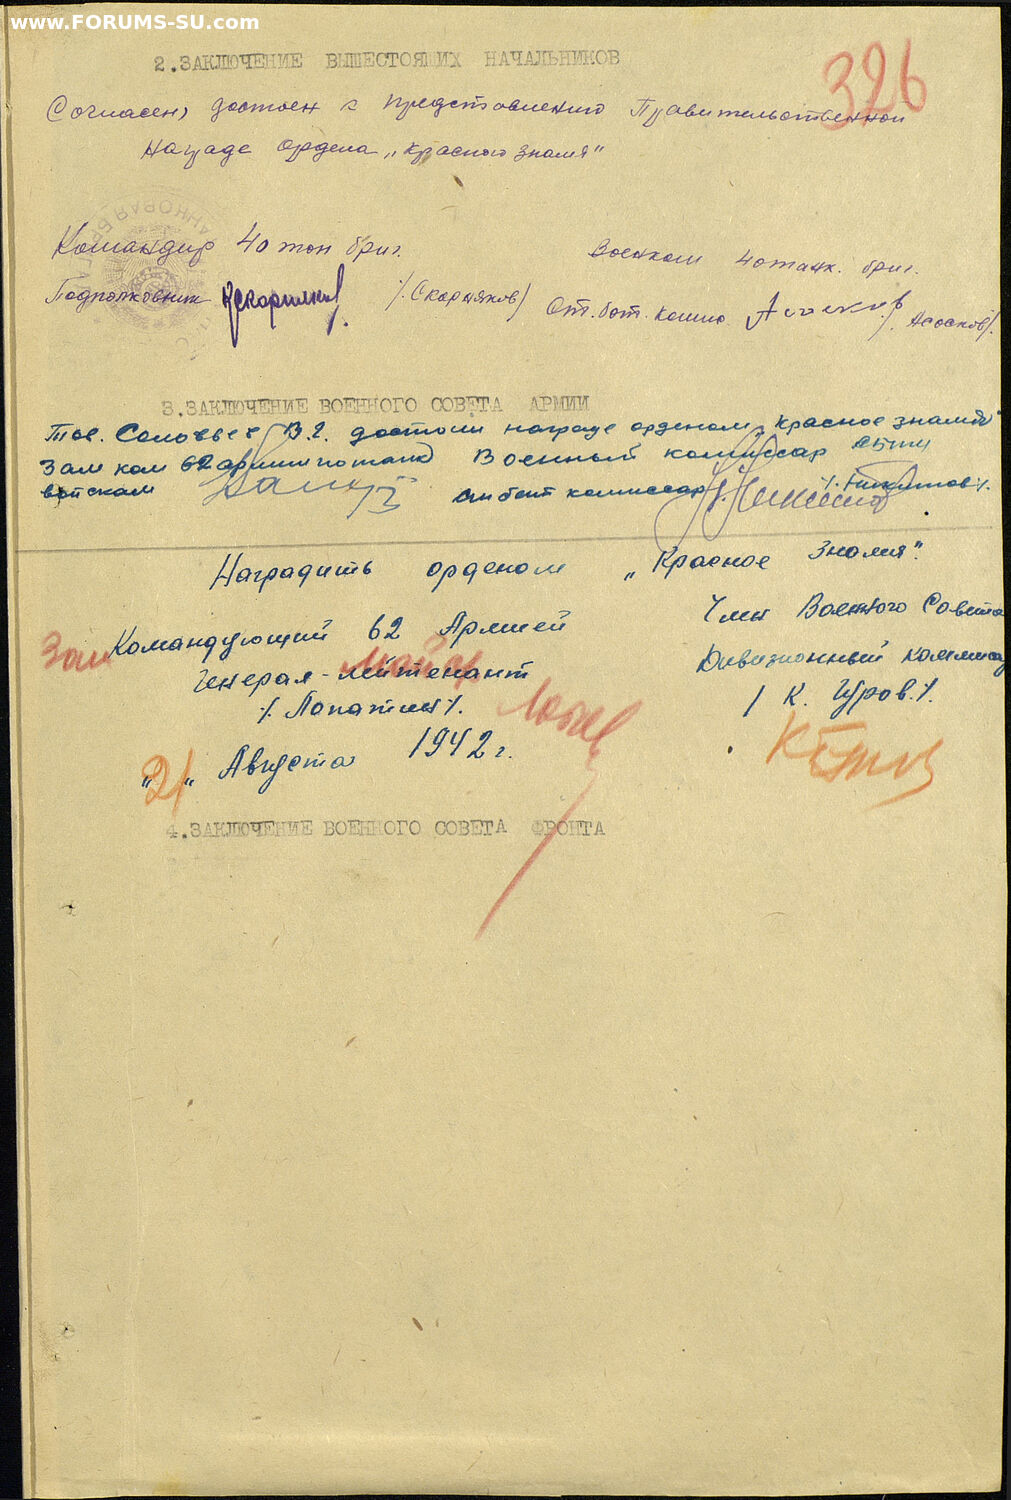 www.FORUMS-SU.com
326
2.ЗАКЛЮЧЕНИЕ ВЫШЕСТОЯЩИХ НАЧАЛЬНИКОВ
Согласен, достоен к представлению Правительственной
награде ордена „Красного Знамя"
Командир 40 тан бриг. Военком 40 танк. бриг.
Подполковник /.Скорняков/ Ст. бат. комис. /. Асосков/.
3.ЗАКЛЮЧЕНИЕ ВОЕННОГО СОВЕТА АРМИИ
Тов. Соловьев В.Г. достоин награде орденом „Красное знамя"
Зам ком 62 армии по танк Военный комиссар АБТЦ
войскам ст. бат комиссар /. Никитов /.
Наградить орденом „Красное Знамя".
Зам Командующий 62 Армией Член Военного Совета
Генерал-лейтенант Дивизионный комисса
/. Лопатин /. / К. Гуров. /.
„21" Августа 1942 г.
4.ЗАКЛЮЧЕНИЕ ВОЕННОГО СОВЕТА ФРОНТА